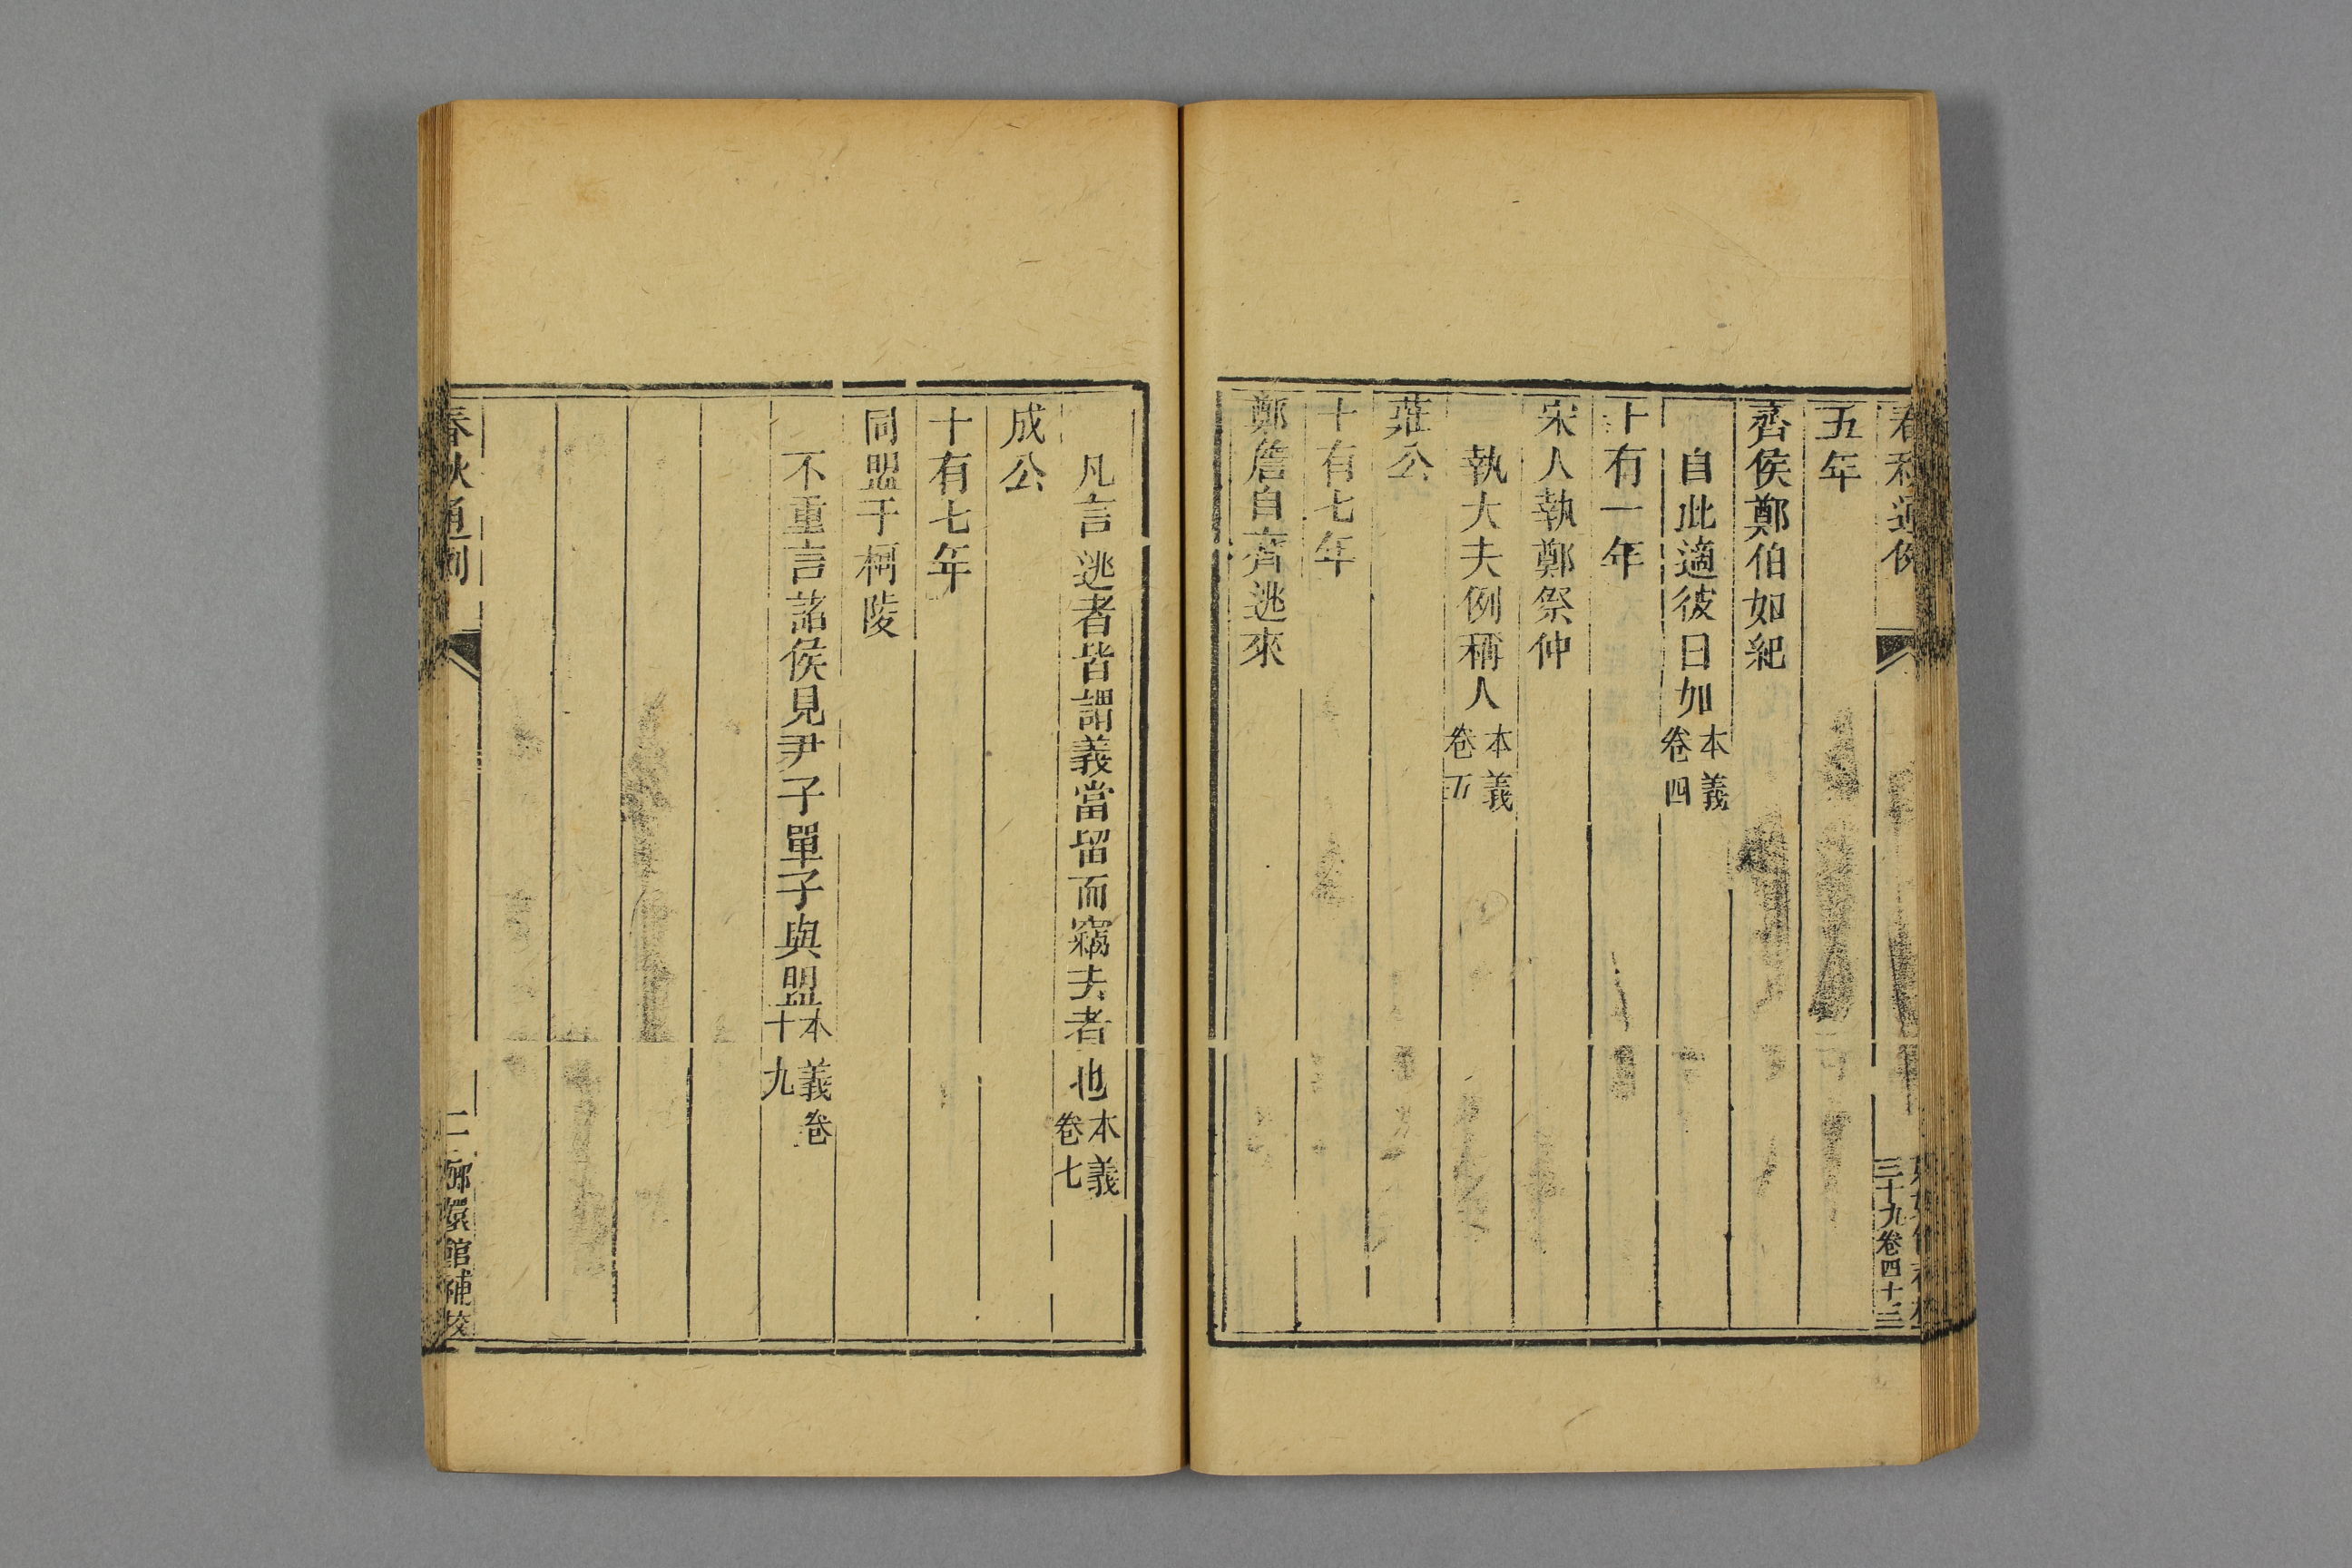 春秋通例
三十九卷四十三
五年
齊侯鄭伯如紀
自此適彼曰如本義卷四
十有一年
宋人執鄭祭仲
執大夫例稱人本義卷五
莊公
十有七年
鄭詹自齊逃來
凡言逃者皆謂義當留而竊去者也本義卷七
成公
十有七年
同盟于柯陵
不重言諸侯見尹子單子與盟本義卷十九
春秋通例
二 瑯嬛館補校